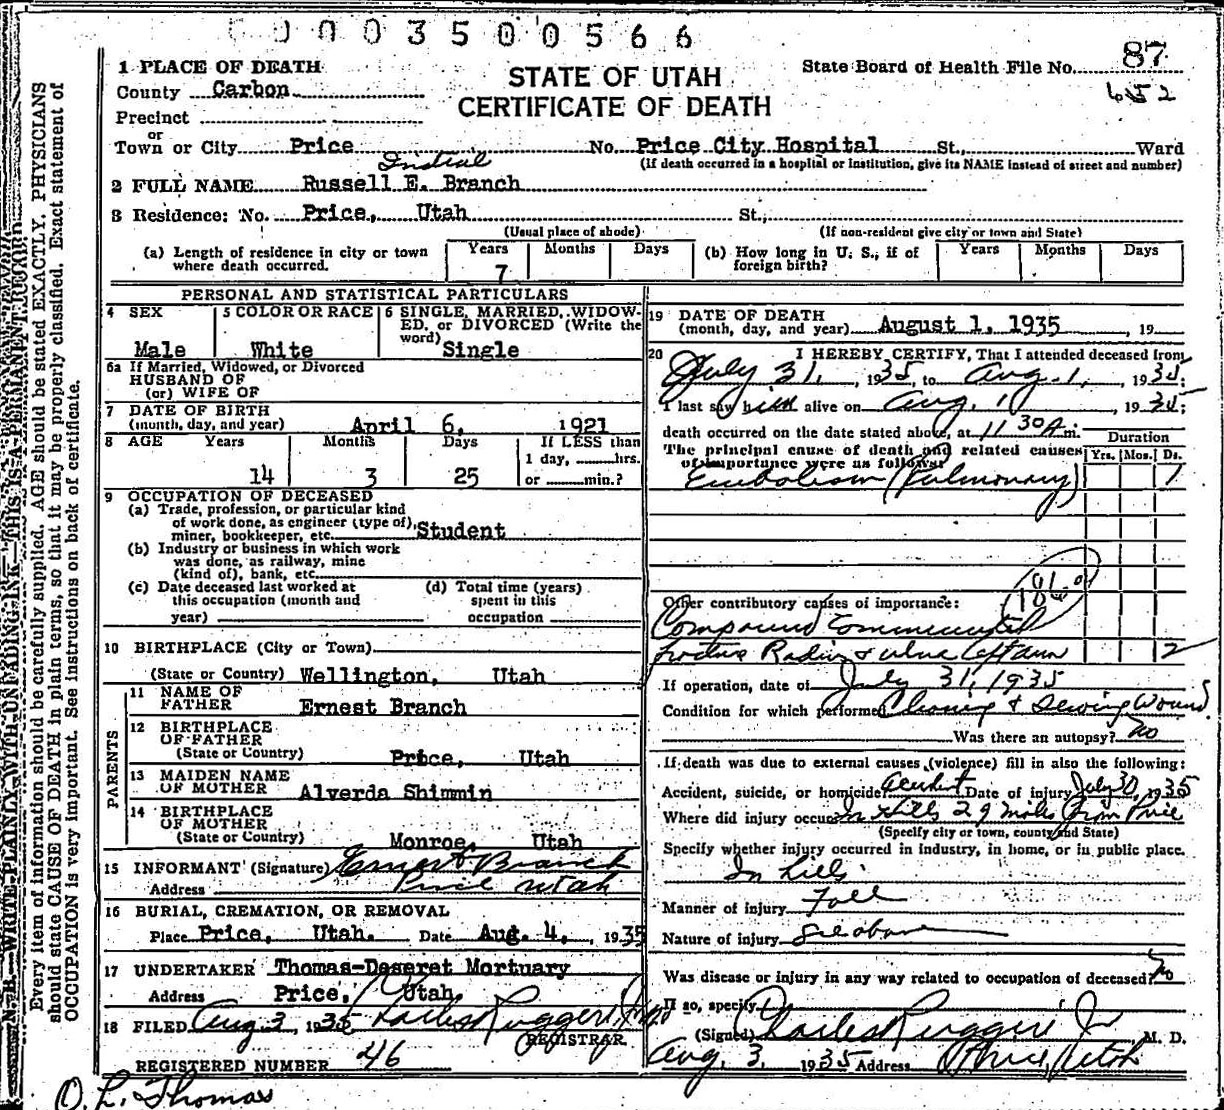 0003500566
STATE OF UTAH
CERTIFICATE OF DEATH
State Board of Health File No. 87
652
1 PLACE OF DEATH
County Carbon
Precinct
or
Town or City Price No. Price City Hospital St., Ward
(If death occurred in a hospital or institution, give its NAME instead of street and number)
Initial
2 FULL NAME Russell E. Branch
3 Residence: No. Price, Utah St.,
(Usual place of abode) (If non-resident give city or town and State)
(a) Length of residence in city or town where death occurred. Years 7 Months Days (b) How long in U. S., if of foreign birth? Years Months Days
PERSONAL AND STATISTICAL PARTICULARS
4 SEX Male
5 COLOR OR RACE White
6 SINGLE, MARRIED, WIDOW-
ED, or DIVORCED (Write the
word) Single
6a If Married, Widowed, or Divorced
HUSBAND OF
(or) WIFE OF
7 DATE OF BIRTH
(month, day, and year) April 6, 1921
8 AGE Years Months Days If LESS than
14 3 25 1 day, hrs.
or min.?
9 OCCUPATION OF DECEASED
(a) Trade, profession, or particular kind
of work done, as engineer (type of),
miner, bookkeeper, etc. Student
(b) Industry or business in which work
was done, as railway, mine
(kind of), bank, etc.
(c) Date deceased last worked at
this occupation (month and
year)
(d) Total time (years)
spent in this
occupation
10 BIRTHPLACE (City or Town)
(State or Country) Wellington, Utah
PARENTS
11 NAME OF
FATHER Ernest Branch
12 BIRTHPLACE
OF FATHER
(State or Country) Price, Utah
13 MAIDEN NAME
OF MOTHER Alverda Shimmin
14 BIRTHPLACE
OF MOTHER
(State or Country) Monroe, Utah
15 INFORMANT (Signature) Ernest Branch
Address Price Utah
16 BURIAL, CREMATION, OR REMOVAL
Place Price, Utah. Date Aug. 4, 1935
17 UNDERTAKER Thomas-Deseret Mortuary
Address Price, Utah.
18 FILED Aug 3, 1935 Charles Ruggeri Jr MD
REGISTRAR
REGISTERED NUMBER 46
O. L. Thomas
19 DATE OF DEATH
(month, day, and year) August 1, 1935, 19
20 I HEREBY CERTIFY, That I attended deceased from
July 31, 1935, to Aug. 1, 1935;
I last saw him alive on Aug. 1, 1935;
death occurred on the date stated above, at 11 30 A m.
The principal cause of death and related causes
of importance were as follows: Duration
Yrs. Mos. Ds.
Embolism (Pulmonary) 1
Other contributory causes of importance:
Compound Comminuted
fracture Radius & ulna left arm 2
If operation, date of July 31, 1935
Condition for which performed Cleaning & Sewing Wound.
Was there an autopsy? no
If death was due to external causes (violence) fill in also the following:
Accident, suicide, or homicide? Accident Date of injury July 30, 1935
Where did injury occur? In Hills 29 miles from Price
(Specify city or town, county and State)
Specify whether injury occurred in industry, in home, or in public place.
In hills
Manner of injury Fall
Nature of injury See above
Was disease or injury in any way related to occupation of deceased? No
If so, specify
(Signed) Charles Ruggeri Jr M. D.
Aug. 3, 1935 Address Price, Utah
N. B. WRITE PLAINLY, WITH UNFADING INK—THIS IS A PERMANENT RECORD
Every item of information should be carefully supplied. AGE should be stated EXACTLY. PHYSICIANS
should state CAUSE OF DEATH in plain terms, so that it may be properly classified. Exact statement of
OCCUPATION is very important. See instructions on back of certificate.